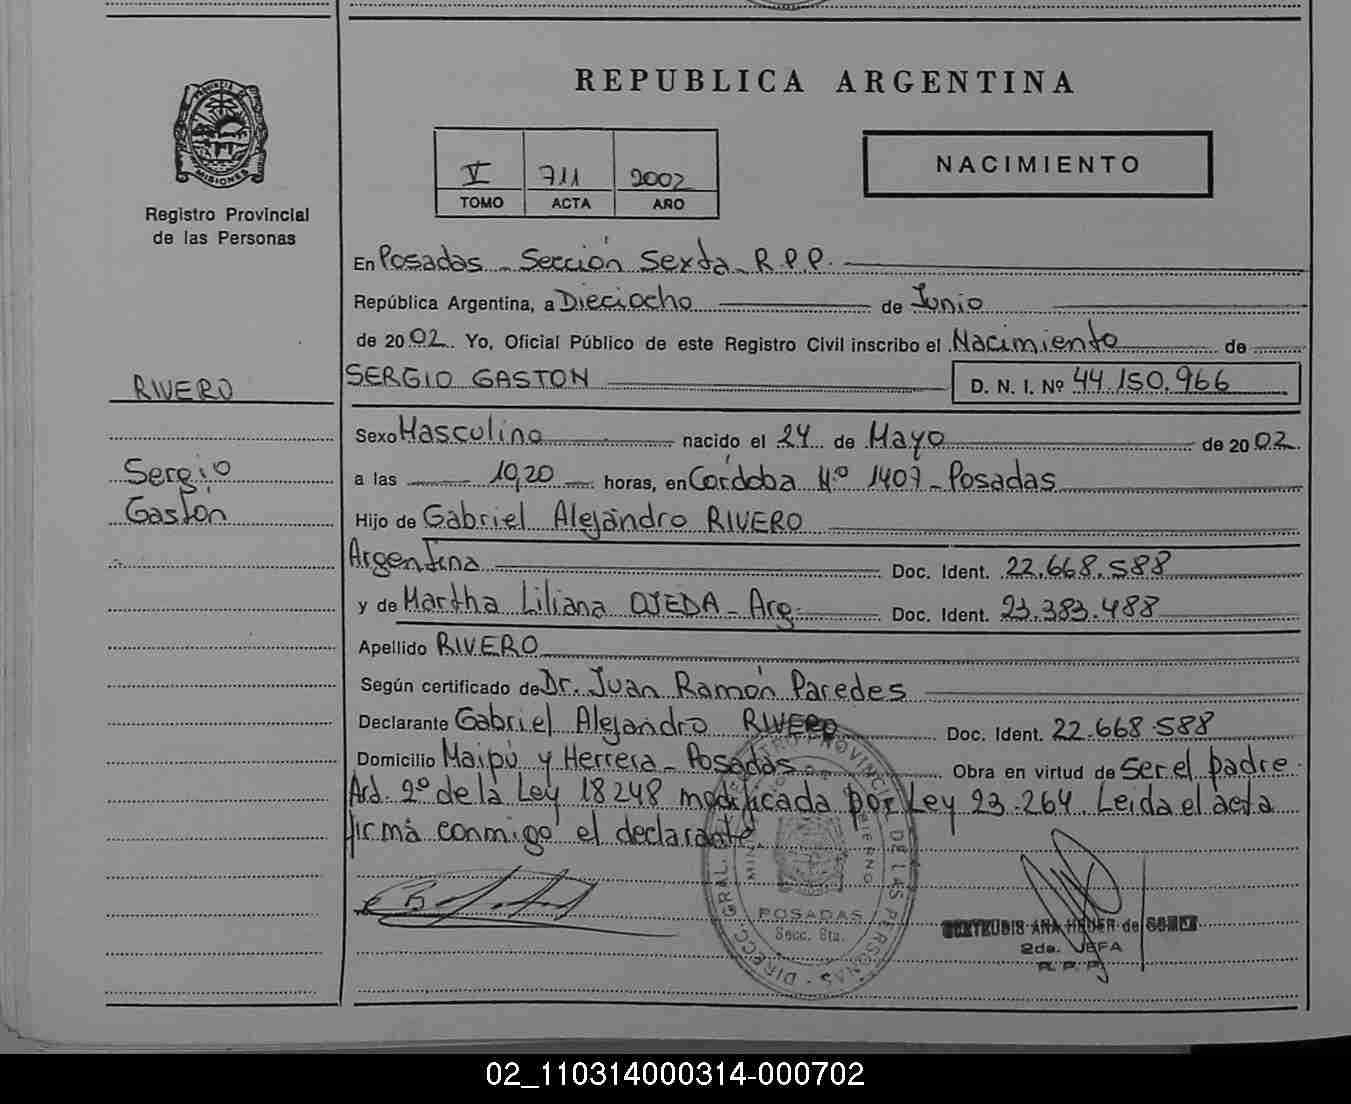 REPUBLICA ARGENTINA
PROVINCIA DE
MISIONES
Registro Provincial
de las Personas
V 711 2002
TOMO ACTA AÑO
NACIMIENTO
En Posadas - Sección Sexta - R.P.P.
República Argentina, a Dieciocho de Junio
de 2002. Yo, Oficial Público de este Registro Civil inscribo el Nacimiento de
RIVERO
SERGIO GASTON D. N. I. Nº 44.150.966
Sexo Masculino nacido el 24 de Mayo de 2002.
Sergio
a las 19,20 horas, en Córdoba Nº 1407 - Posadas
Gastón
Hijo de Gabriel Alejandro RIVERO
Argentina Doc. Ident. 22.668.588
y de Martha Liliana OJEDA - Arg. Doc. Ident. 23.383.488
Apellido RIVERO
Según certificado de Dr. Juan Ramón Paredes
Declarante Gabriel Alejandro RIVERO Doc. Ident. 22.668.588
Domicilio Maipú y Herrera - Posadas Obra en virtud de ser el padre
Ard. 2º de la Ley 18248 modificada por Ley 23.264. Leida el acta
firmá conmigo el declarante
DIRECC. GRAL. REGISTRO PROVINCIAL DE LAS PERSONAS
POSADAS
Secc. 6ta.
GERTRUDIS ANA HEUER de GOMEZ
2da. JEFA
R. P. P.
02_110314000314-000702